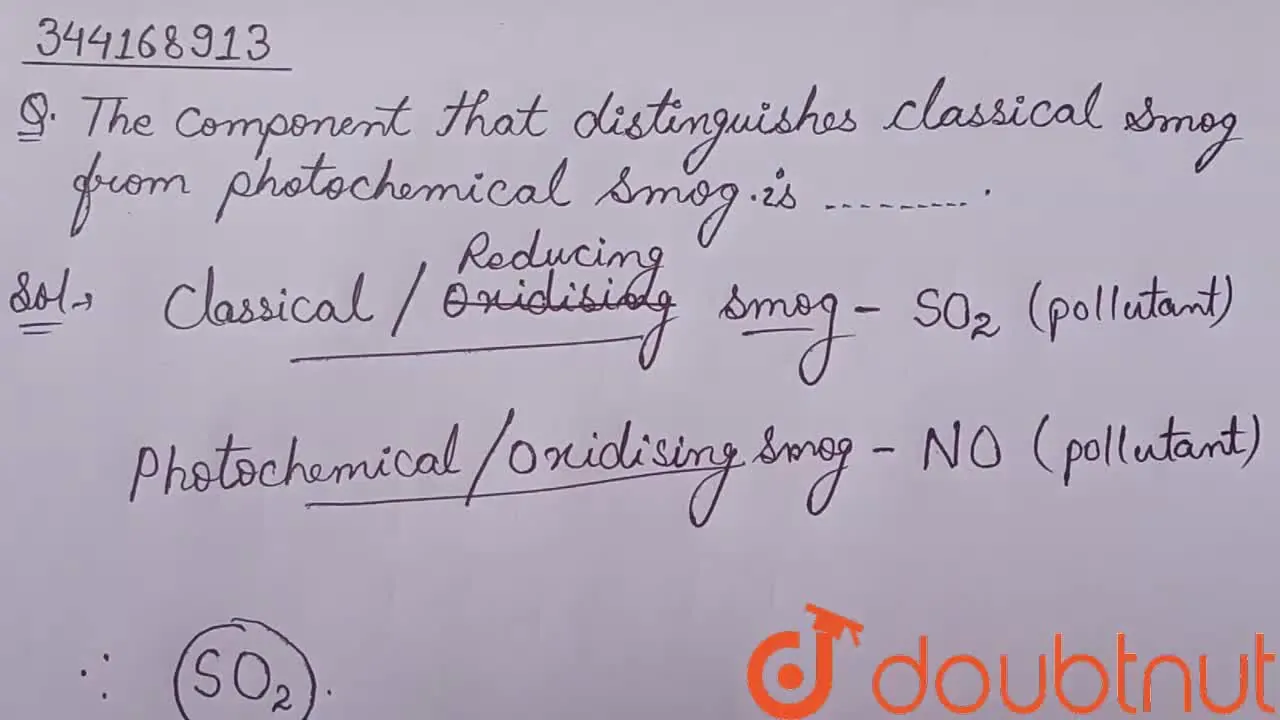 344168913
Q. The component that distinguishes classical smog
from photochemical smog.is ..........
Sol→ Classical / Reducing Oxidising smog - SO2 (pollutant)
Photochemical / Oxidising smog - NO (pollutant)
∴ SO2.
doubtnut